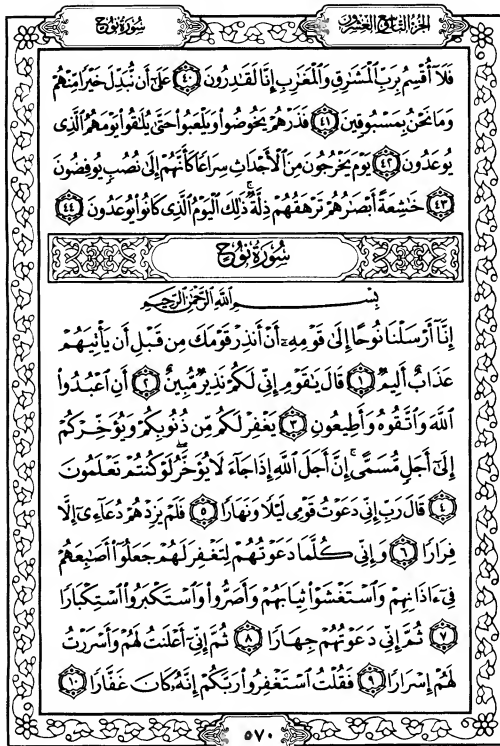 سُورَةُ نُوحٍ
الجُزْءُ التَّاسِعُ وَالعِشْرُونَ
فَلَآ أُقْسِمُ بِرَبِّ ٱلْمَشَٰرِقِ وَٱلْمَغَٰرِبِ إِنَّا لَقَٰدِرُونَ ﴿٤٠﴾ عَلَىٰٓ أَن نُّبَدِّلَ خَيْرًا مِّنْهُمْ
وَمَا نَحْنُ بِمَسْبُوقِينَ ﴿٤١﴾ فَذَرْهُمْ يَخُوضُوا۟ وَيَلْعَبُوا۟ حَتَّىٰ يُلَٰقُوا۟ يَوْمَهُمُ ٱلَّذِى
يُوعَدُونَ ﴿٤٢﴾ يَوْمَ يَخْرُجُونَ مِنَ ٱلْأَجْدَاثِ سِرَاعًا كَأَنَّهُمْ إِلَىٰ نُصُبٍ يُوفِضُونَ
﴿٤٣﴾ خَٰشِعَةً أَبْصَٰرُهُمْ تَرْهَقُهُمْ ذِلَّةٌ ۚ ذَٰلِكَ ٱلْيَوْمُ ٱلَّذِى كَانُوا۟ يُوعَدُونَ ﴿٤٤﴾
سُورَةُ نُوحٍ
بِسْمِ ٱللَّهِ ٱلرَّحْمَٰنِ ٱلرَّحِيمِ
إِنَّآ أَرْسَلْنَا نُوحًا إِلَىٰ قَوْمِهِۦٓ أَنْ أَنذِرْ قَوْمَكَ مِن قَبْلِ أَن يَأْتِيَهُمْ
عَذَابٌ أَلِيمٌ ﴿١﴾ قَالَ يَٰقَوْمِ إِنِّى لَكُمْ نَذِيرٌ مُّبِينٌ ﴿٢﴾ أَنِ ٱعْبُدُوا۟
ٱللَّهَ وَٱتَّقُوهُ وَأَطِيعُونِ ﴿٣﴾ يَغْفِرْ لَكُم مِّن ذُنُوبِكُمْ وَيُؤَخِّرْكُمْ
إِلَىٰٓ أَجَلٍ مُّسَمًّى ۚ إِنَّ أَجَلَ ٱللَّهِ إِذَا جَآءَ لَا يُؤَخَّرُ ۖ لَوْ كُنتُمْ تَعْلَمُونَ
﴿٤﴾ قَالَ رَبِّ إِنِّى دَعَوْتُ قَوْمِى لَيْلًا وَنَهَارًا ﴿٥﴾ فَلَمْ يَزِدْهُمْ دُعَآءِىٓ إِلَّا
فِرَارًا ﴿٦﴾ وَإِنِّى كُلَّمَا دَعَوْتُهُمْ لِتَغْفِرَ لَهُمْ جَعَلُوٓا۟ أَصَٰبِعَهُمْ
فِىٓ ءَاذَانِهِمْ وَٱسْتَغْشَوْا۟ ثِيَابَهُمْ وَأَصَرُّوا۟ وَٱسْتَكْبَرُوا۟ ٱسْتِكْبَارًا
﴿٧﴾ ثُمَّ إِنِّى دَعَوْتُهُمْ جِهَارًا ﴿٨﴾ ثُمَّ إِنِّىٓ أَعْلَنتُ لَهُمْ وَأَسْرَرْتُ
لَهُمْ إِسْرَارًا ﴿٩﴾ فَقُلْتُ ٱسْتَغْفِرُوا۟ رَبَّكُمْ إِنَّهُۥ كَانَ غَفَّارًا ﴿١٠﴾
٥٧٠